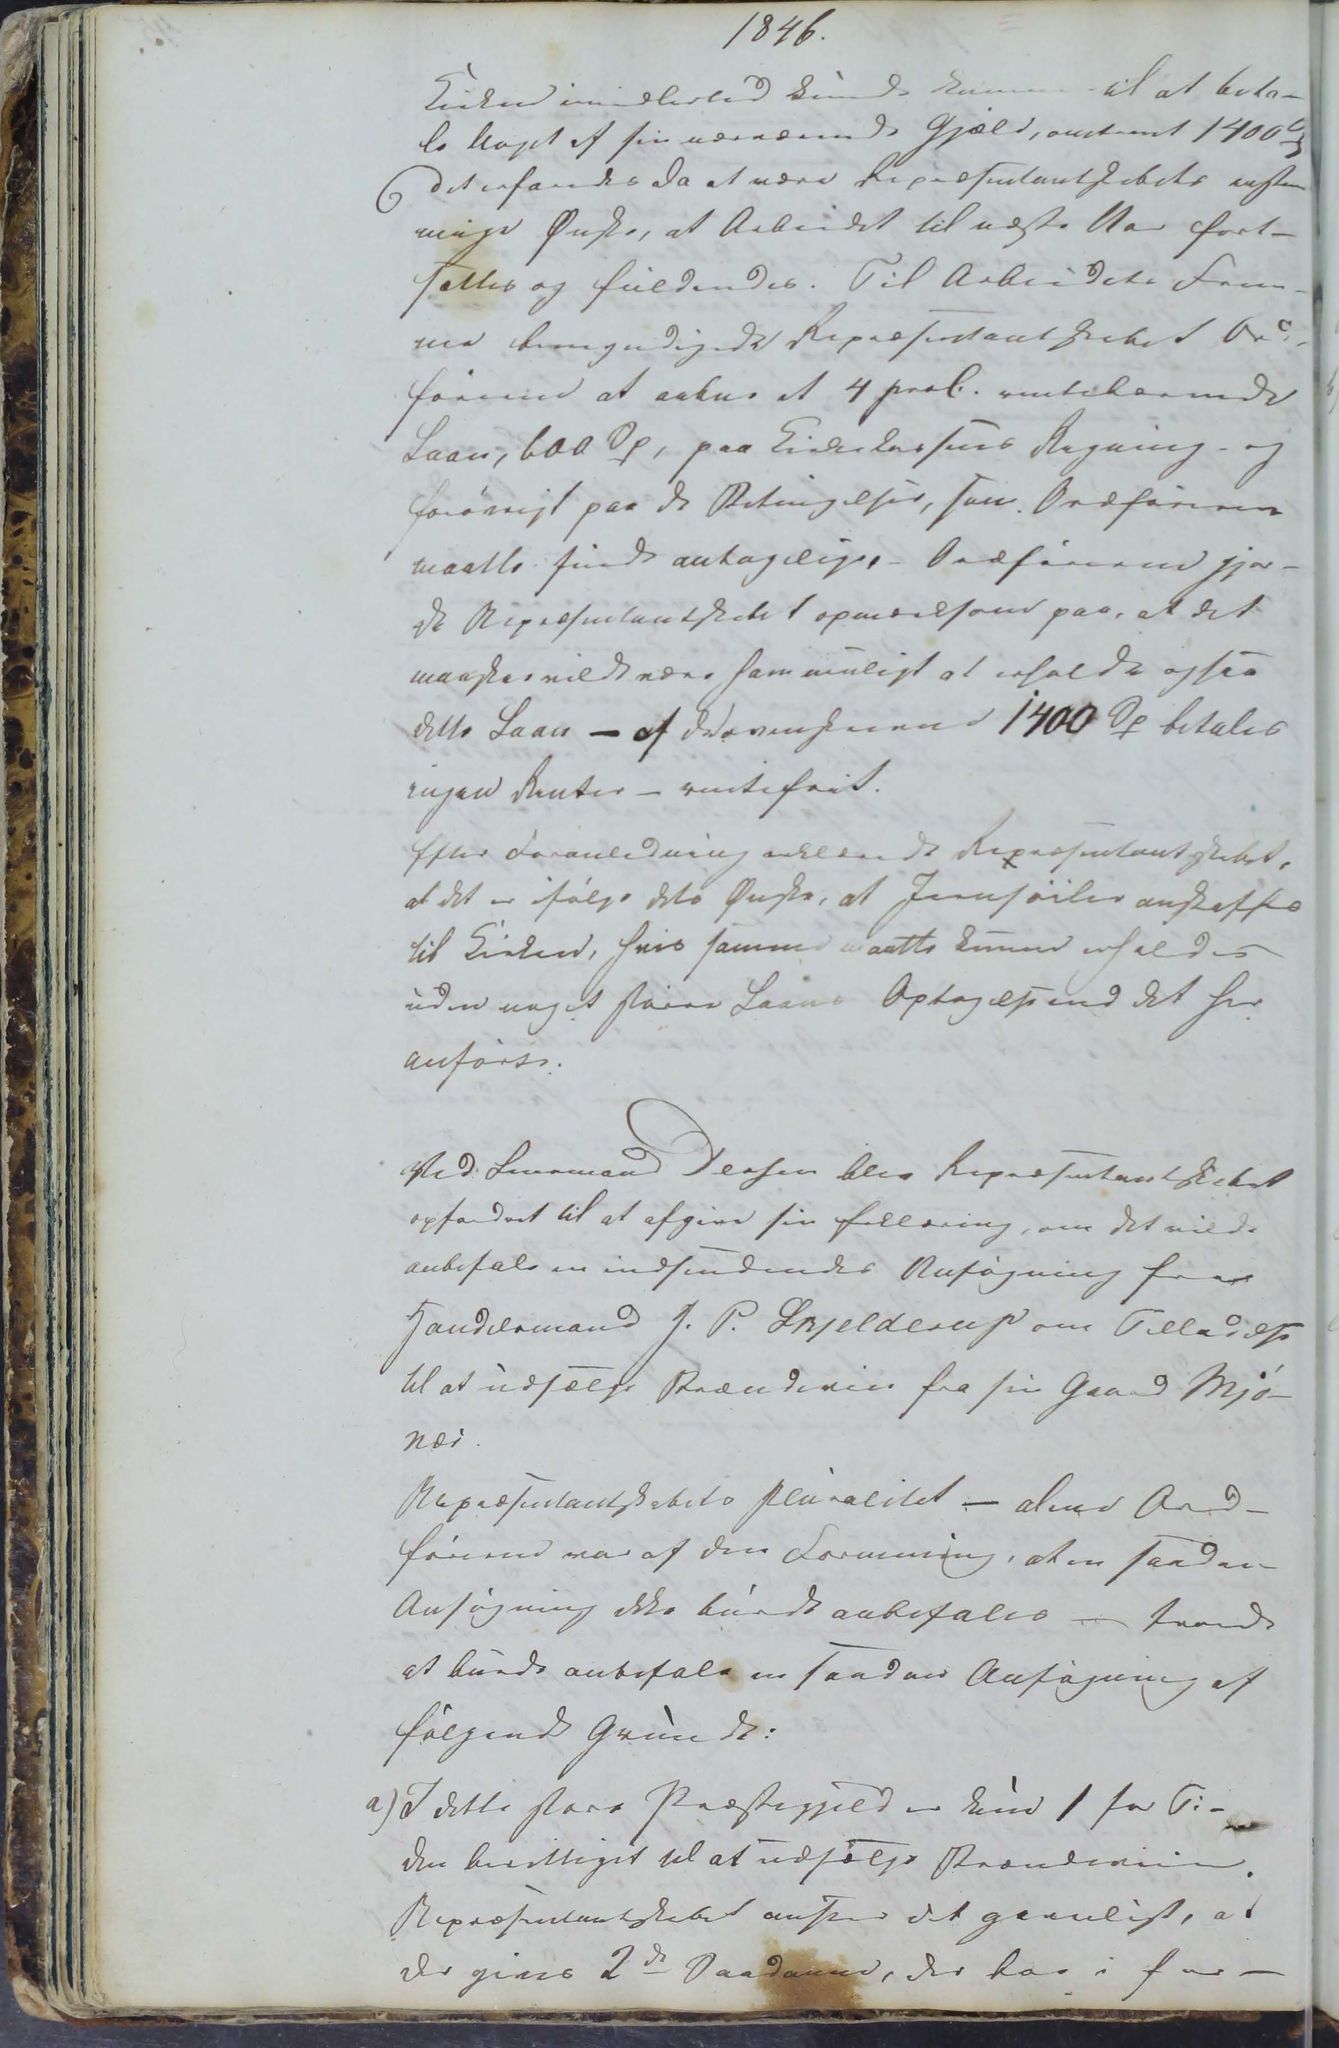 1846.
Kirken imidlertid kunde komme til at beta-
le Noget af sin nærværende Gjæld, omtrent 1400
det erfaredes da at være Repræsentantskabets enstem
mige Ønske, at Arbeidet til næste Aar fort-
sættes og fuldendes. Til Arbeidets Frem-
me bemyndigede Repræsentantskabet Ord-
føreren at aabne et 4 proC. rentebærende
Laan, 600 Spd, paa Kirkekassens Regning - og
forøvrigt paa de Betingelser, som Ordføreren
maatte finde antagelige. - Ordføreren gjor-
de Repræsentantskabet opmærksom paa, at det
maaskee vilde være ham muligt at erholde ogsaa
dette Laan - af de ovenskrevne 1400 Spd betales
ingen Renter - rentefrit.
Efter Foranledning erklærede Repræsentantskabet,
at det er ifølge dets Ønske, at Jernsøiler anskaffes
til Kirken, hvis samme maatte kunne erholdes
uden noget større Laans Optagelse end det her
anførte.
Ved Lensmand blev Repræsentantskabet
opfordret til at afgive sin Erklæring, om det vilde
anbefale en indsendendes Ansøgning fra
Handelsmand J. P. Skjelderup om Tilladelse
til at udsælge Brændeviin fra sin Gaard Mjø-
næs.
Repræsentantskabets Pluralitet - alene Ord-
føreren var af den Formening, at en saadan
Ansøgning ikke burde anbefales - troede
at burde anbefale en saadan Ansøgning af
følgende Grunde:
a) I dette store Præstegjeld er kun 1 for Ti-
den berettiget til at udsælge Brændeviin.
Repræsentantskabet anseer det gavnligt, at
der gives 2de Saadanne, der bor i for-